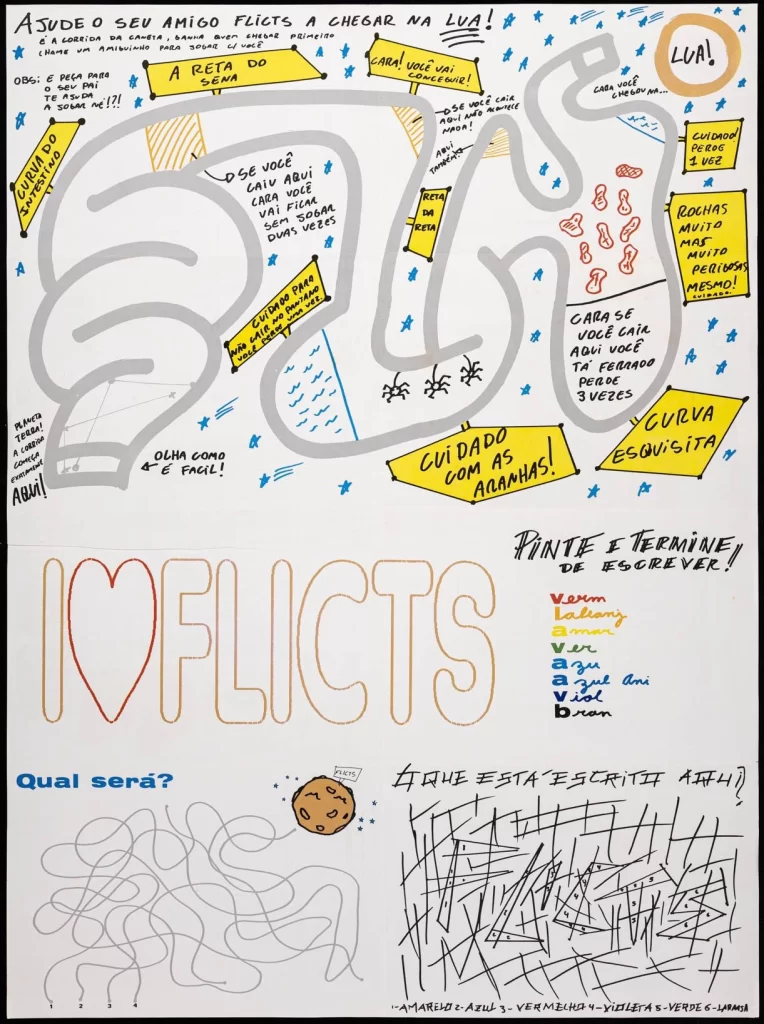 AJUDE O SEU AMIGO FLICTS A CHEGAR NA LUA!
É A CORRIDA DA CANETA, GANHA QUEM CHEGAR PRIMEIRO
CHAME UM AMIGUINHO PARA JOGAR C/ VOCÊ
OBS: E PEÇA PARA
O SEU PAI
TE AJUDA
A JOGAR NÉ!?!
A RETA DO
SENA
CARA! VOCÊ VAI
CONCEGUIR!
LUA!
CARA VOCÊ
CHEGOU NA...
CURVA DO
INTESTINO
SE VOCÊ CAIR
AQUI NÃO ACONTECE
NADA!
AQUI
TAMBÉM!
CUIDADO!
PERDE
1 VEZ
SE VOCÊ
CAIU AQUI
CARA VOCÊ
VAI FICAR
SEM JOGAR
DUAS VEZES
RETA
DA
RETA
ROCHAS
MUITO
MAS
MUITO
PERIGOSAS
MESMO!
CUIDADO.
CUIDADO PARA
NÃO CAIR NO PANTANO
VOCÊ PERDE UMA VEZ.
CARA SE
VOCÊ CAIR
AQUI VOCÊ
TÁ FERRADO
PERDE
3 VEZES
PLANETA
TERRA!
A CORRIDA
COMEÇA
EXATAMENTE
AQUI!
OLHA COMO
É FACIL!
CUIDADO
COM AS
ARANHAS!
CURVA
ESQUISITA
PINTE E TERMINE
DE ESCREVER!
I FLICTS
verm
laranj
amar
ver
azu
azul ani
viol
bran
Qual será?
FLICTS
1 2 3 4
O QUE ESTÁ ESCRITO AQUI?
1-AMARELO 2-AZUL 3-VERMELHO 4-VIOLETA 5-VERDE 6-LARANJA